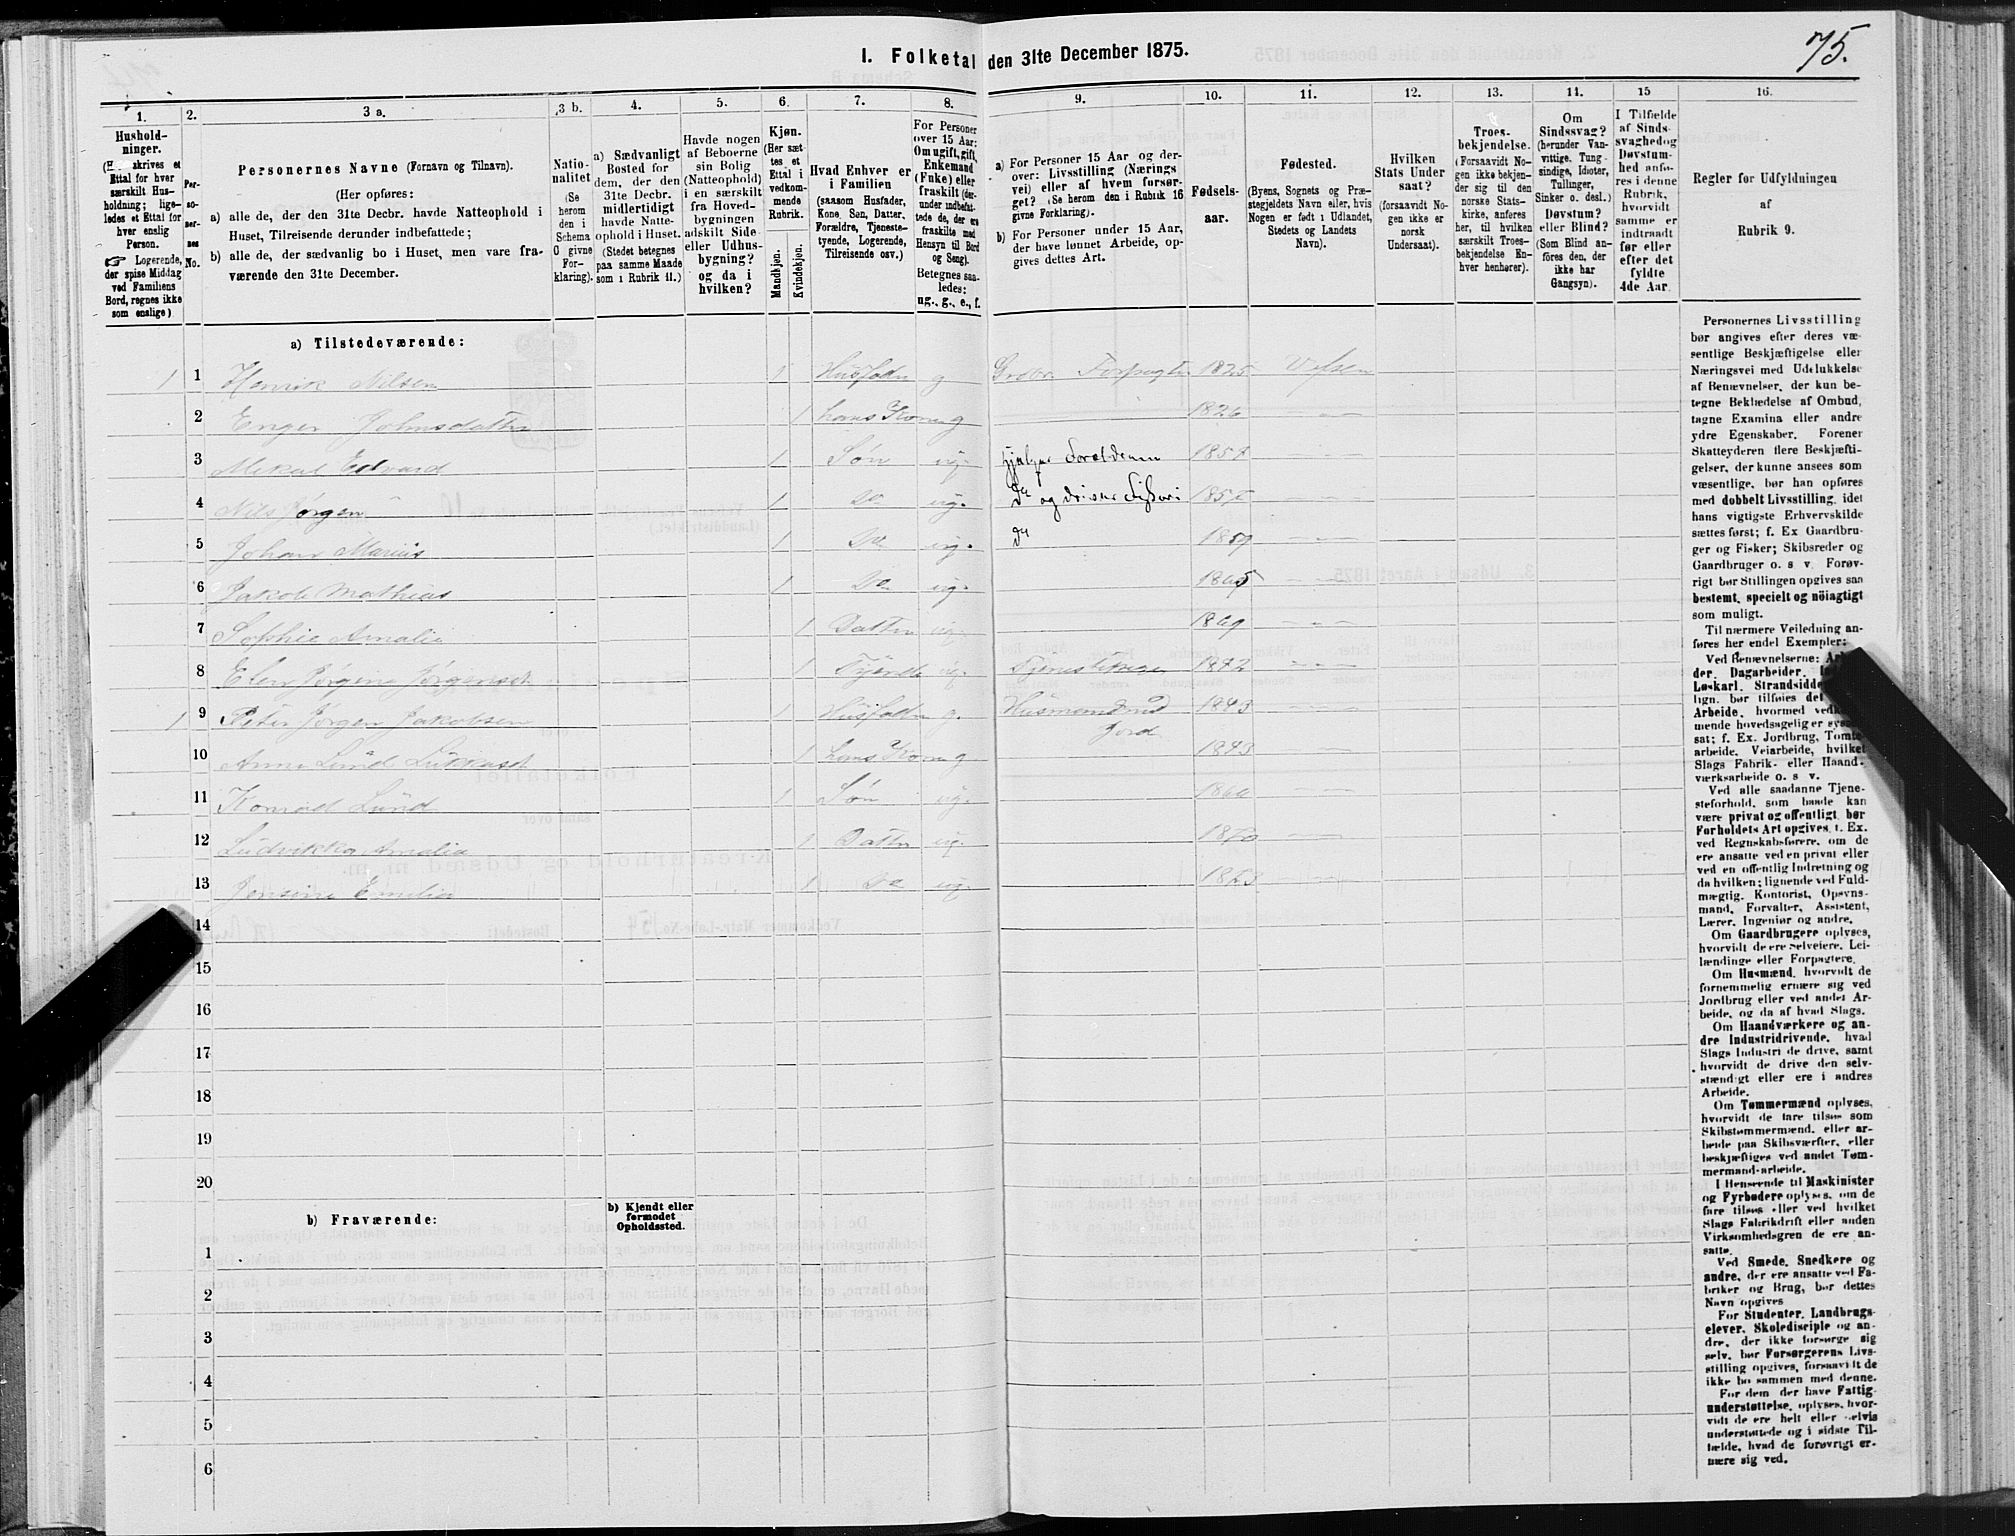 75.
I. Folketal den 31te December 1875.
1. 2. 3 a. 3 b. 4. 5. 6. 7. 8. 9. 10. 11. 12. 13. 14. 15 16.
Hushold-
ninger.
Ettal for hver
særskilt Hus-
holdning; lige-
ledes et Ettal for
hver enslig
Person.
☞ Logerende,
der spise Middag
ved Familiens
Bord, regnes ikke
som enslige)
Per-
so-
ner-
nes
No.
Personernes Navne (Fornavn og Tilnavn).
(Her opføres:
a) alle de, der den 31te Decbr. havde Natteophold i
Huset, Tilreisende derunder indbefattede;
b) alle de, der sædvanlig bo i Huset, men vare fra-
værende den 31te December.
Natio-
nalitet
(Se
herom
den i
Schema
O givne
For-
klaring).
a) Sædvanligt
Bosted for
dem, der den
31te Decbr.
midlertidigt
havde Natte-
ophold i Huset.
(Stedet betegnes
paa samme Maade
som i Rubrik 11.)
Havde nogen
af Beboerne
sin Bolig
(Natteophold)
i en særskilt
fra Hoved-
bygningen
adskilt Side-
eller Udhus-
bygning?
og da i
hvilken?
Kjøn.
(Her sæt-
tes et
Ettal i
vedkom-
mende
Rubrik.
Mandkjøn.
Kvindekjøn.
Hvad Enhver er
i Familien
(saasom Husfader,
Kone, Søn, Datter,
Forældre, Tjeneste-
tyende, Logerende,
Tilreisende osv.)
For Personer
over 15 Aar:
Om ugift, gift,
Enkemand
(Enke) eller
fraskilt (der-
under indbefat-
tede de, der ere
fraskilte med
Hensyn til Bord
og Seng).
Betegnes saa-
ledes:
ug., g., e., f.
a) For Personer 15 Aar og der-
over: Livsstilling (Nærings
vei) eller af hvem forsør-
get? (Se herom den i Rubrik 16
givne Forklaring.)
b) For Personer under 15 Aar,
der have lønnet Arbeide, op-
gives dettes Art.
Fødsels-
aar.
Fødested.
(Byens, Sognets og Præ-
stegjeldets Navn eller, hvis
Nogen er født i Udlandet,
Stedets og Landets
Navn).
Hvilken
Stats Under
saat?
(forsaavidt No-
gen ikke er
norsk
Undersaat).
Troes-
bekjendelse.
(Forsaavidt No-
gen ikke bekjen-
der sig til den
norske Stats-
kirke, anføres
her, til hvilken
særskilt Troes-
bekjendelse En-
hver henhører).
Om
Sindssvag?
(herunder Van-
vittige, Tung-
sindige, Idioter,
Tullinger,
Sinker o. desl.)
Døvstum?
eller Blind?
(Som Blind an-
føres den, der
ikke har
Gangsyn).
I Tilfælde
af Sinds-
svaghed og
Døvstum-
hed anfø-
res i denne
Rubrik,
hvorvidt
samme er
indtraadt
før eller
efter det
fyldte
4de Aar.
Regler for Udfyldningen
af
Rubrik 9.
a) Tilstedeværende:
1 1 Henrik Nilsen 1 Husfader g 1825 Vefsen
2 Johnsdatter 1 hans Kone g 1826
3 Mikal Edvard 1 Søn ug. hjælper Forældrene
4 Nils Jørgen 1 Do ug. Do og driver Fiskeri
5 Johan Marius 1 Do ug. Do 1859
6 Jakob Mathias 1 Do ug. 1865
7 Sophie Amalia 1 Datter ug. 1869
8 1 Tyende ug. 1842
1 9 Peter Jørgen Jakobsen 1 Husfader g. Husmand med 1843
Jord
10 Anna Lund 1 hans Kone g 1843
11 Konrad Lund 1 Søn ug.
12 Ludvikka Amalia 1 Datter ug. 1870
13 Jensine Emilia 1 Do ug. 1873
14
15
16
17
18
19
20
b) Fraværende:
b) Kjendt eller
formodet
Opholdssted.
1
2
3
4
5
6
Personernes Livsstilling
bør angives efter deres væ-
sentlige Beskjæftigelse eller
Næringsvei med Udelukkelse
af Benævnelser, der kun be-
tegne Beklædelse af Ombud,
tagne Examina eller andre
ydre Egenskaber. Forener
Skatteyderen flere Beskjæfti-
gelser, der kunne ansees som
væsentlige, bør han opføres
med dobbelt Livsstilling, idet
hans vigtigste Erhvervskilde
sættes først; f. Ex Gaardbru-
ger og Fisker; Skibsreder og
Gaardbruger o. s. v. Forøv-
rigt bør Stillingen opgives saa
bestemt, specielt og nöiagtigt
som muligt.
Til nærmere Veiledning an-
føres her endel Exempler:
Ved Benævnelserne:
der, Dagarbeider,
Løskarl, Strandsidder
lign. bør tilføies det
Arbeide, hvormed
mende hovedsagelig er
sat; f. Ex. Jordbrug, Tomte-
arbeide, Veiarbeide, hvilket
Slags Fabrik- eller Haand-
værksarbeide o. s. v.
Ved alle saadanne Tjene-
steforhold, som baade kan
være privat og offentligt, bør
Forholdets Art opgives, t. Ex.
ved Regnskabsførere, om de
ere ansatte ved en privat eller
ved en offentlig Indretning og
da hvilken; lignende ved Fuld-
mægtig, Kontorist, Opsyns-
mand, Forvalter, Assistent,
Lærer, Ingeniør og andre.
Om Gaardbrugere oplyses,
hvorvidt de ere Selveiere, Lei-
lændinge eller Forpagtere.
Om Husmænd, hvorvidt de
fornemmelig ernære sig ved
Jordbrug eller ved andet Ar-
beide, og da af hvad Slags.
Om Haandværkere og an-
dre Industridrivende, hvad
Slags Industri de drive, samt
hvorvidt de drive den selv-
stændigt eller ere i andres
Arbeide.
Om Tømmermænd oplyses,
hvorvidt de fare tilsøs som
Skibstømmermænd, eller ar-
beide paa Skibsværfter, eller
beskjæftiges ved andet Tøm-
mermand-arbeide.
I Henseende til Maskinister
og Fyrbødere oplyses, om de
fare tilsøs eller ved hvilket
Slags Fabrikdrift eller anden
Virksomhedsgren de ere an-
satte.
Ved Smede, Snedkere og
andre, der ere ansatte ved Fa-
briker og Brug, bør dettes
Navn opgives
For Studenter, Landbrugs-
elever, Skoledisciple og an-
dre, der ikke forsørge sig
selv, bør Forsørgerens Livs-
stilling opgives, forsaavidt de
ikke bo sammen med denne.
For dem der have Fattig-
understøttelse, oplyses, hvor-
vidt de ere helt eller delvis
understøttede og i sidste Til-
fælde, hvad de forøvrigt er-
nære sig ved.